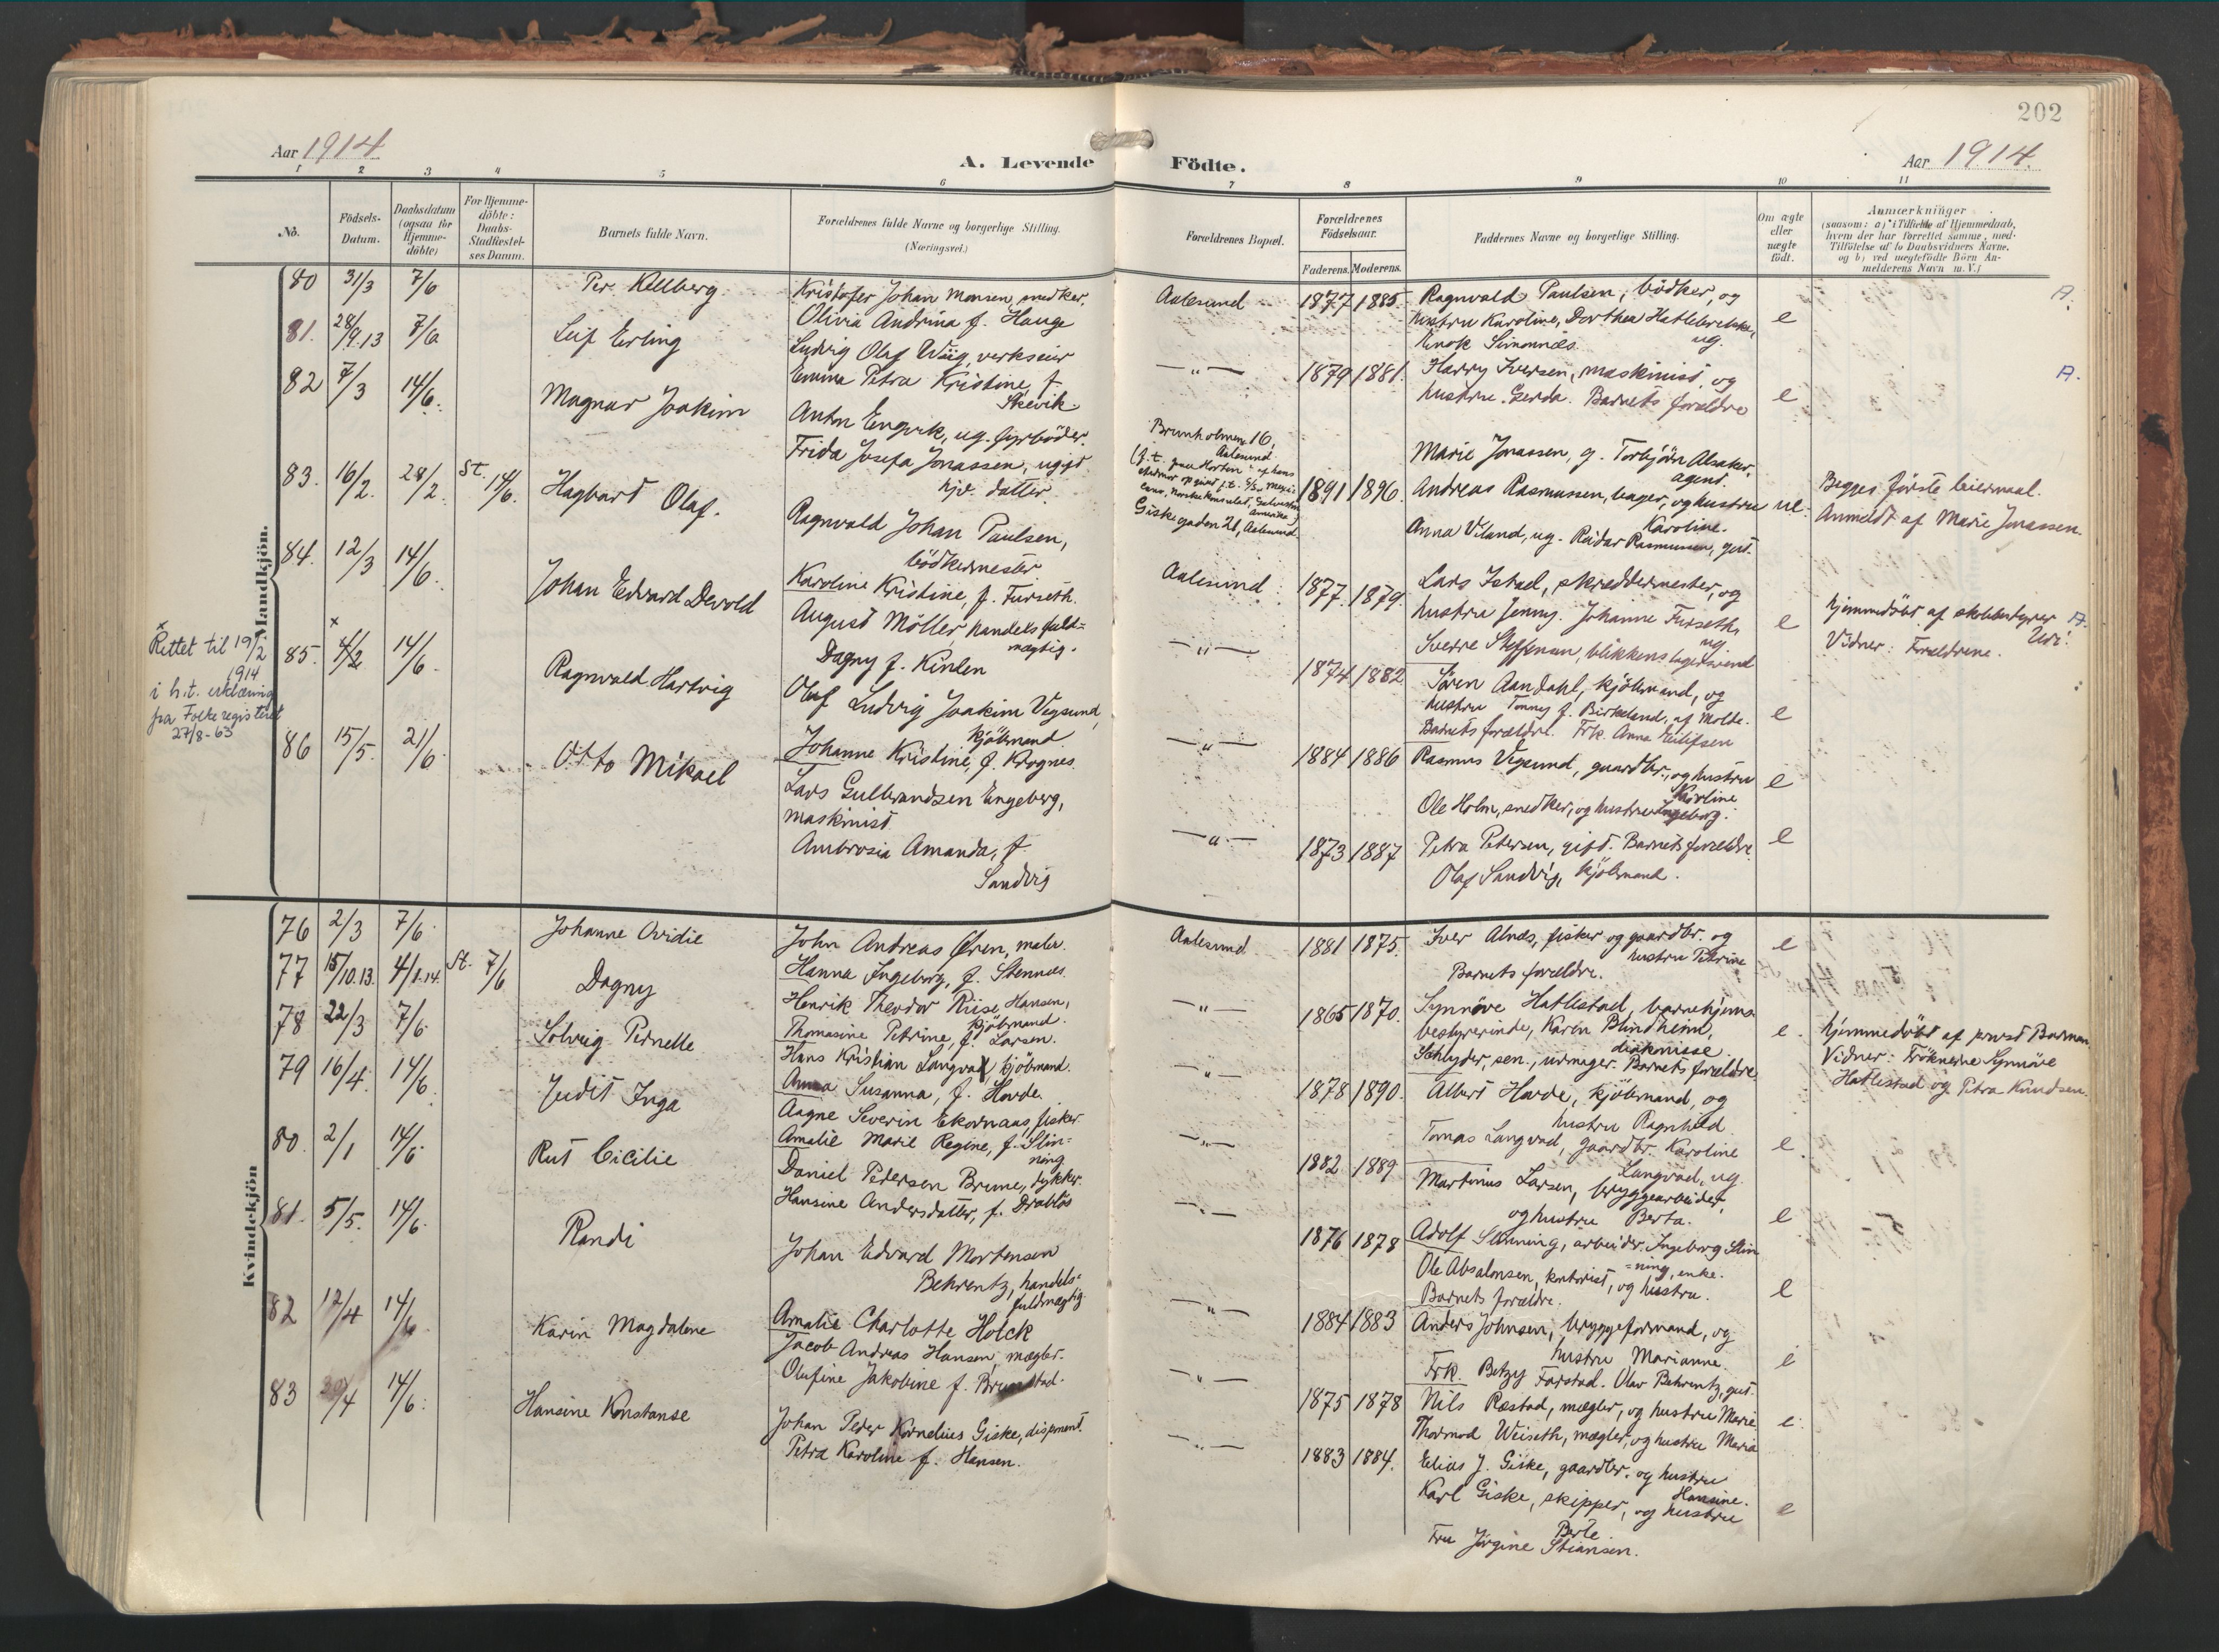 202
Aar 1914
A. Levende
Födte.
Aar 1914.
1 2 3 4 5 6 7 8 9 10 11
No.
Födsels-Datum.
Daabsdatum (ogsaa for Hjemme-döbte)
For Hjemme-döbte: Daabs-Stadfæstel-ses Datum.
Barnets fulde Navn.
Forældrenes fulde Navne og borgerlige Stilling. (Næringsvei.)
Forældrenes Bopæl.
Forældrenes Födselsaar.
Faderens. Moderens.
Faddernes Navne og borgerlige Stilling.
Om ægte eller uægte födt.
Anmærkninger
(saasom: a) i Tilfælde af Hjemmedaab, hvem der har forrettet samme, med Tilföielse af to Daabsvidners Navne, og b) ved uægtefödte Börn An-melderens Navn m. V.)
Mandkjön.
80 31/3 7/6 Per Kellberg
Kristofer Johan Monsen, snedker.
Olivia Andrina f. Hauge
Aalesund 1877 1885.
Ragnvald Paulsen, bödker, og
hustru Karoline, Dorthea Hatlebrekke,
ug.
Enok Simonnæs.
e
A.
81. 28/9.13 7/6 Leif Erling
Ludvig Olaf Wiig, verkseier
Emma Petra Kristine f.
Skevik.
— " — 1879 1881.
Harry Iversen, maskinist, og
hustru Gerda. Barnets forældre
e
A.
82 7/3 14/6. Magnar Joakim
Anton Engvik, ug. fyrböder.
Frida Josefa Jonassen, ugift
hjv. datter.
Brunholmen 16,
Aalesund.
Giskegaden 21, Aalesund.
1891 1896.
Marie Jonassen, g. Torbjörn Alsaker,
agent.
Andreas Rasmussen, bager, og hustru
Karoline.
Anna Viland, ug. Reidar Rasmussen, gut.
ue.
Begges förste leiermaal.
Anmeldt af Marie Jonassen.
83. 16/2. 28/2. St. 14/6. Hagbart Olaf.
Ragnvald Johan Paulsen,
bödkermester
Karoline Kristine, f. Furseth.
Aalesund 1877. 1879.
Lars Istad, skræddermester, og
hustru Jenny. Johanne Furseth,
ug.
Sverre Steffensen, blikkenslagersvend
e
Hjemmedöbt af skolebestyrer
Vidner: Forældrene.
A.
84. 12/3 14/6. Johan Edvard Devold
August Möller, handelsfuld-
mægtig.
Dagny f. Kinlen
— " — 1874 1882
Sören Aandahl, kjöbmand, og
hustru Tonny f. Birkeland, af Molde.
Barnets forældre. Frk. Anna Eilifsen
e
x Rettet til 19/2
1914
i h.t. erklæring
fra Folkeregisteret
27/8-63
85. x 4/2 14/6. Ragnvald Hartvig
Olaf Ludvig Joakim Vegsund,
kjöbmand
Johanne Kristine, f. Krognes.
— " — 1884 1886
Rasmus Vegsund, gaardbr., og hustru
Karoline
Ole Holm, snedker, og hustru Ingeborg.
e
86 15/5. 21/6 Otto Mikael
Lars Gulbrandsen Engeberg,
maskinist
Ambrosia Amanda, f.
Sandvig
— " — 1873 1887
Petra Petersen, gift. Barnets forældre.
Olaf Sandvig, kjöbmand.
e
Kvindekjön
76 2/3 7/6. Johanne Ovidie
John Andreas Ören, maler.
Hanna Ingeborg, f. Stennæs.
Aalesund 1881 1875.
Iver Alnæs, fisker og gaardbr. og
hustru Petrine
Barnets forældre.
e
77 15/10.13. 4/1.14. St. 7/6 Dagny
Henrik Theodor Riise Hansen,
kjöbmand.
Thomasine Petrine, f. Larsen.
— " — 1865 1870.
Synnöve Hatlestad, barnehjems-
bestyrerinde, Karin Blindheim,
diakonisse
Schlyder, sen., urmager. Barnets forældre
e.
Hjemmedöbt af provst Barman
Vidner: Fröknerne Synnöve
Hatlestad og Petra Knudsen.
78 22/3 7/6. Solveig Pernelle
Hans Kristian Langva, kjöbmand.
Anna Susanna, f. Hovde.
— " — 1878 1890.
Albert Hovde, kjöbmand, og
hustru Ragnhild
Tomas Langvad, gaardbr. Karoline
Langvad, ug.
e.
79 16/4. 14/6. Judit Inga
Aagne Severin Ekornaas, fisker.
Amalie Marie Regine, f. Slin-
ning
— " — 1882 1889
Martinus Larsen, bryggearbeider,
og hustru Berta.
Adolf Slinning, arbeider. Ingeborg Slin
=ning, enke.
e
80. 2/1 14/6. Rut Cicilie
Daniel Pedersen Brune, dykker.
Hansine Andersdatter, f. Drablös
— " — 1876 1878
Ole Absalonsen, kontorist, og hustru.
Barnets forældre.
e
81. 5/5. 14/6. Randi
Johan Edvard Mortensen
Behrentz, handels-
fuldmægtig
Amalie Charlotte Holck
— " — 1884 1883
Anders Johnsen, bryggeformand, og
hustru Marianne.
Frk. Betzy Farstad. Olav Behrentz, gut.
e
82 17/4 14/6 Karin Magdalene
Jacob Andreas Hansen, mægler.
Olufine Jakobine f. Brunstad.
— " — 1875 1878
Nils Ræstad, mægler, og hustru Marie
Thormod Weiseth, mægler, og hustru Maria
e.
83 30/4 14/6. Hansine Konstanse
Johan Peder Kornelius Giske, disponent.
Petra Karoline f. Hansen.
— " — 1883 1884.
Elias J. Giske, gaardbr. og hustru
Hansine.
Karl Giske, skipper, og hustru
Berte.
Fru Jörgine Stiansen.
e